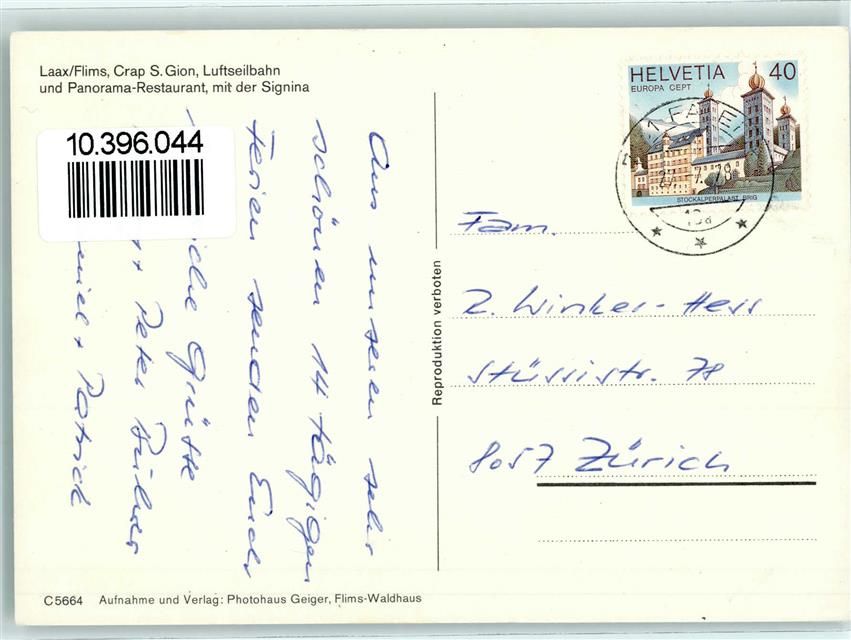 Laax/Flims, Crap S. Gion, Luftseilbahn
und Panorama-Restaurant, mit der Signina
10.396.044
Aus unseren sehr
schönen 14 tägigen
Ferien senden Euch
Grüsse
Peter
+ Patrick
Reproduktion verboten
HELVETIA 40
EUROPA CEPT
STOCKALPERPALAST BRIG
Fam.
Z. Winker-Hess
Stüssistr. 78
8057 Zürich
C5664 Aufnahme und Verlag: Photohaus Geiger, Flims-Waldhaus